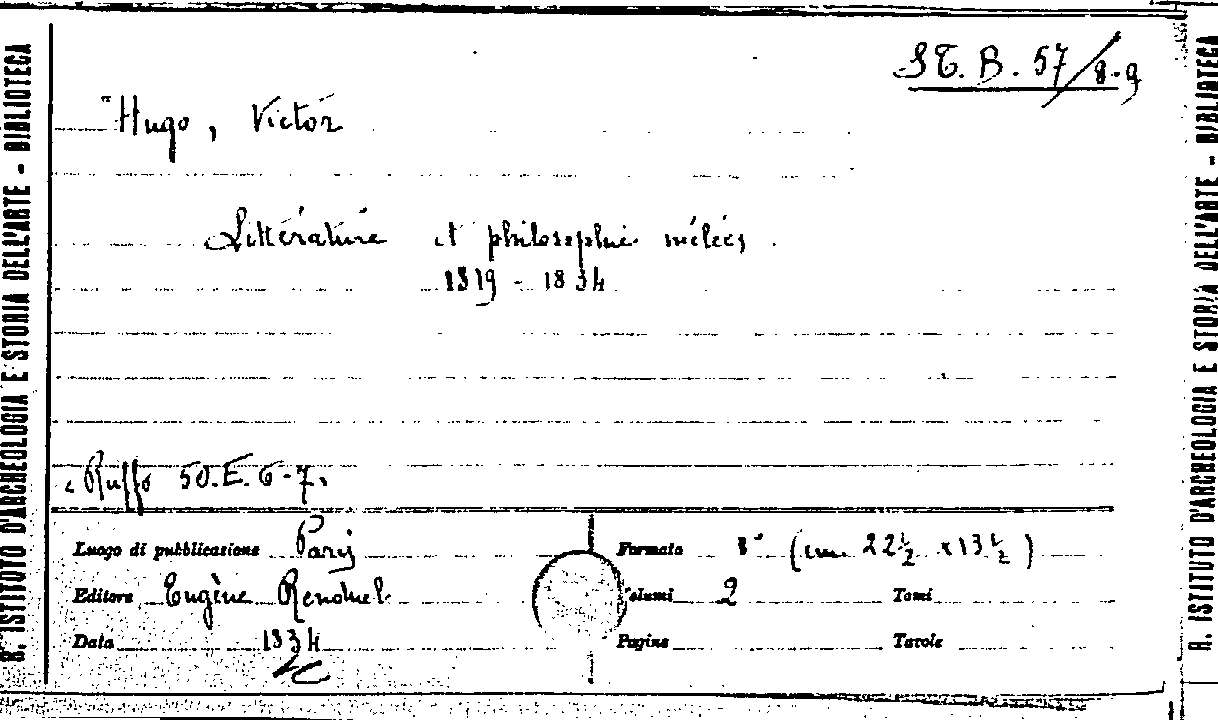 ST. B. 57/8-9
Hugo, Victor
Littérature et philosophie mêlées.
1819 - 1834
Ruffo 50.E.6-7.
Luogo di pubblicazione Paris
Formato 8° (cm. 22½ x13½)
Editore Eugène Renduel
Volumi 2 Tomi
Data 1834
Pagine Tavole
R. ISTITUTO D'ARCHEOLOGIA E STORIA DELL'ARTE - BIBLIOTECA
R. ISTITUTO D'ARCHEOLOGIA E STORIA DELL'ARTE - BIBLIOTECA